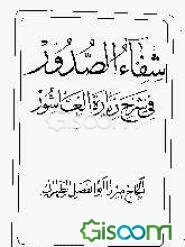 شِفَاءُ الصُّدُورِ
فى شرح زيارة العاشور
الحاج ميرزا ابوالفضل الطهرانى
Gisoom
.com